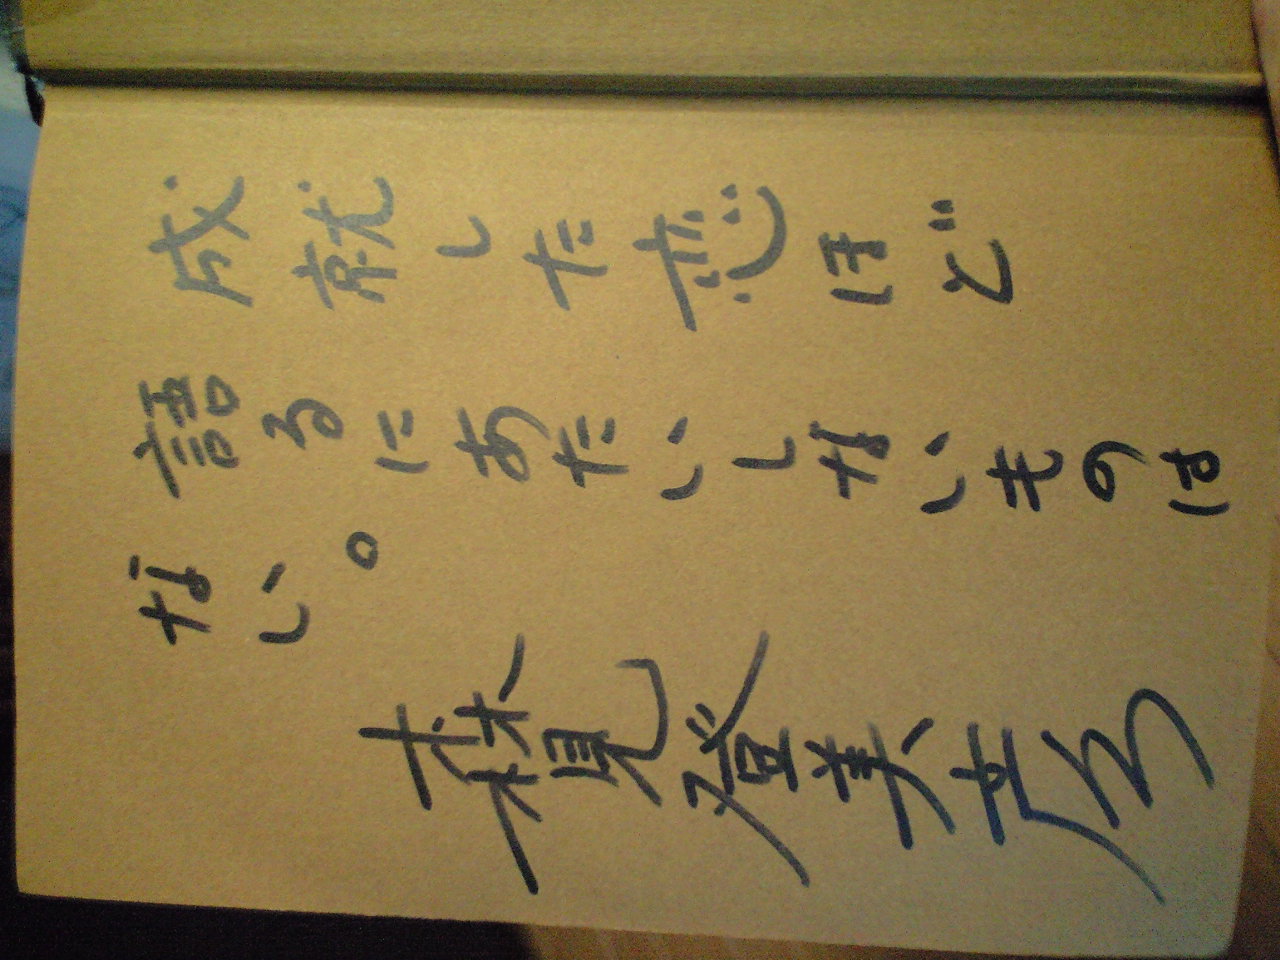 成就した恋ほど
語るにあたいしないものは
ない。
森見登美彦